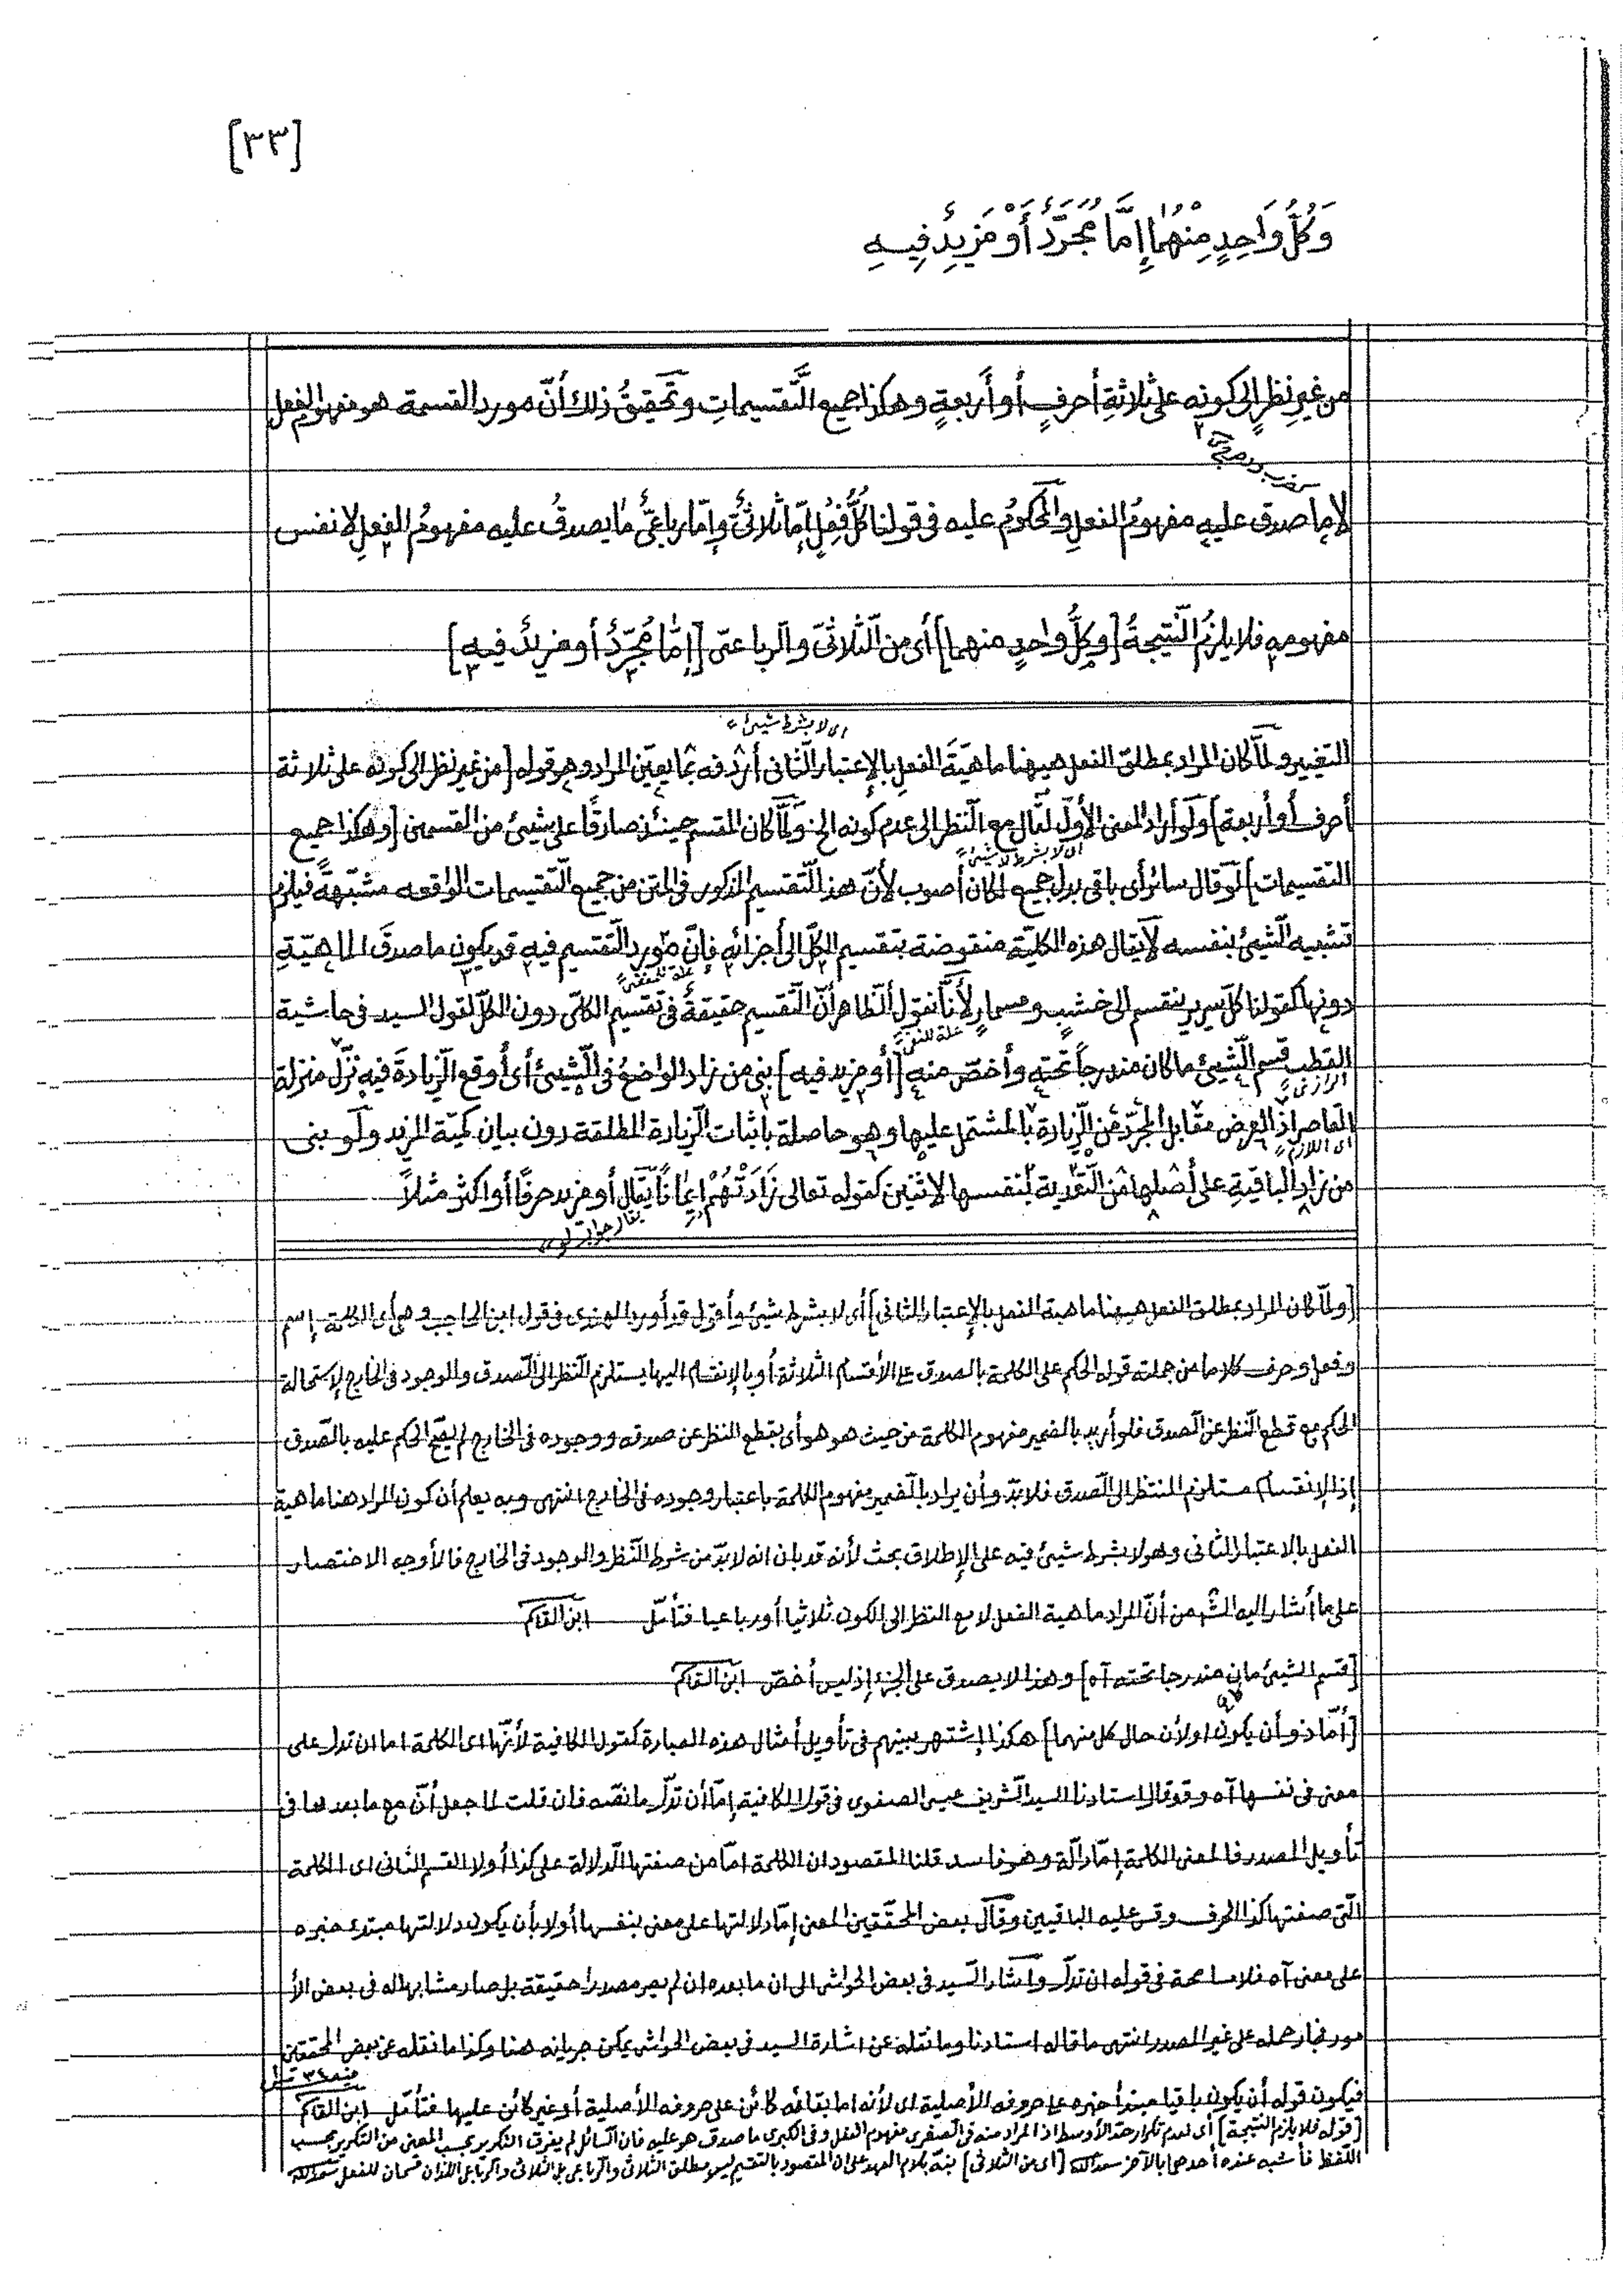 [٣٣]
وَكُلُّ وَاحِدٍ مِنْهُمَا إِمَّا مُجَرَّدٌ أَوْ مَزِيدٌ فِيهِ
من غيرِ نظرٍ إلى كونِه على ثلاثةِ أحرفٍ أو أربعةٍ وهكذا جميع التَّقسيماتِ وتحقيقُ ذلك أنّ مورد القسمة هو مفهوم الفعل
لا ما صدق عليه مفهومُ الفعلِ والمحكومُ عليه فى قولنا كُلُّ فِعْلٍ إمّا ثلاثىٌّ وإمّا رباعىٌّ ما يصدقُ عليه مفهومُ الفعلِ لا نفس
مفهومِه فلا يلزمُ النّتيجةُ [وكلُّ واحدٍ منهما] أى من الثّلاثىّ والرباعىّ [إمّا مُجرّدٌ أو مزيدٌ فيه]
اى لا بشرط شيئ
التغيير ولمّا كان المراد بمطلق الفعل هيهنا ماهيّةَ الفعل بالإعتبار الثّانى أردفه بما يعيّن المراد وهو قوله [من غير نظر الى كونه على ثلاثة
أحرف أو أربعة] ولو أراد المعنى الأوّل لقال مع النّظر الى عدم كونه الخ ولمّا كان المقسم حينئذ صادقًا على شيئ من القسمين [وهكذا جميع
اى لا بشرط لا شيئ
التقسيمات] لو قال سائر أى باقى بدل جميع لكان أصوب لأنّ هذا التّقسيم المذكور فى المتن من جميع التّقسيمات الواقعه مشبّهةً فيلزم
تشبيه الشّيئ بنفسه لا يقال هذه الكليّة منقوضة بتقسيم الكلّ الى أجزائه فإنّ مورد التّقسيم فيه قد يكون ما صدقَ الماهيّةِ
علة للمنفى
دونها كقولنا كلّ سرير ينقسم الى خشبٍ ومسمارٍ لأنّا نقول الظّاهر أنّ التّقسيم حقيقةٌ فى تقسيم الكلّى دون الكلّ لقول السيد فى حاشية
علة للنفى
القطب قسم الشّيئ ما كان مندرجًا تحته وأخصّ منه [أو مزيد فيه] بنى من زاد الواضعُ فى الشّيئ أى أوقع الزّيادةَ فيه نزّل منزلة
الرازى
القاصر إذ الغرض مقابل المجرّد عن الزّيادة بالمشتمل عليها وهو حاصلة بأثبات الزّيادة المطلقة دون بيان كميّة المزيد ولو بنى
اى اللازم
من زاد الباقيةِ على أصلها من التّعدية بنفسها لإثنين كقوله تعالى زَادَتْهُمْ إيمَانًا يقال أو مزيد حرفًا أو اكثر مثلاً
يقال جواب لو
[ولمّا كان المراد بمطلق الفعل هيهنا ماهية الفعل بالإعتبار الثانى] أى لا بشرط شيئ وأقول قد أورد الهندى فى قول ابن الحاجب وهى أى الكلمة إسم
وفعل وحرف كلاما من جملته قوله الحكم على الكلمة بالصدق على الأقسام الثلاثة أو بالإنقسام اليها يستلزم النّظر الى الصّدق والوجود فى الخارج لإستحالة
الحكم مع قطع النّظر عن الصدق فلو أريد بالضمير مفهوم الكلمة من حيث هو هو أى بقطع النظر عن صدقه ووجوده فى الخارج لم يصحّ الحكم عليه بالصّدق
إذ الإنقسام مستلزم للنظر الى الصّدق فلا بدّ وأن يراد بالضّمير مفهوم الكلمة باعتبار وجوده فى الخارج انتهى وبه يعلم أن كون المراد هنا ماهية
الفعل بالاعتبار الثانى وهو لا بشرط شيئ فيه على الإطلاق بحث لأنه قد بان انه لا بدّ من شرط النّظر والوجود فى الخارج فالأوجه الاختصار
على ما أشار اليه الشّ من أنّ المراد ماهية الفعل لا مع النظر الى الكون ثلاثيا أو رباعيا فتأمّل ابن القاسم
[قسم الشيئ ما كان مندرجا تحته آه] وهذا لا يصدق على الجزء إذ ليس أخصّ ابن القاسم
[أمّا ذو أن يكون اولأن حال كل منهما] هكذا إشتهر بينهم فى تأويل أمثال هذه العبارة كقول الكافية لأنّها اى الكلمة اما ان تدل على
معنى فى نفسها آه وقد قال استادنا السيد الشّريف عيسى الصفوى فى قول الكافية إمّا أن تدلّ ما نصّه فان قلت لما جعل أنّ مع ما بعدها فى
تأويل المصدر فالمعنى الكلمة إمّا دالّة وهو فاسد قلنا المقصود ان الكلمة امّا من صفتها الدلالة على كذا أولا القسم الثانى اى الكلمة
الّتى صفتها كذا الحرف وقس عليه الباقيين وقال بعض المحقّقين المعنى إمّا دلالتها على معنى بنفسها أولا بأن يكون دلالتها مبتدء خبره
على معنى آه فلا مسامحة فى قوله ان تدلّ وأشار السّيد فى بعض الحواشى الى ان ما بعده ان لم يصر مصدرا حقيقة بل صار مشابها له فى بعض الأ
مور فجاز حمله على غير المصدر انتهى ما قاله استادنا وما نقله عن اشارة السيد فى بعض الحواشى يمكن جريانه هنا وكذا ما نقله عن بعض المحققين
فيكون قوله أن يكون باقيا مبتدأ خبره على حروفه الأصلية اى لأنه اما بقائه كائن على حروفه الأصلية أو غير كائن عليها فتأمّل ابن القاسم
[قوله فلا يلزم النتيجة] أى لعدم تكرار حدّ الأوسط اذ المراد منه فى الصغرى مفهوم الفعل وفى الكبرى ما صدق هو عليه فان السّائل لم يفرق التكرير بحسب المعنى من التكرير بحسب
اللّفظ فأشبه عنده أحدهما بالآخر سعدالله [اى من الثلاثى] نبّه بلام العهد على ان المقصود بالتقسيم ليس مطلق الثلاثى والرباعى بل الثلاثى والرباعى اللذان قسمان للفعل سعدالله